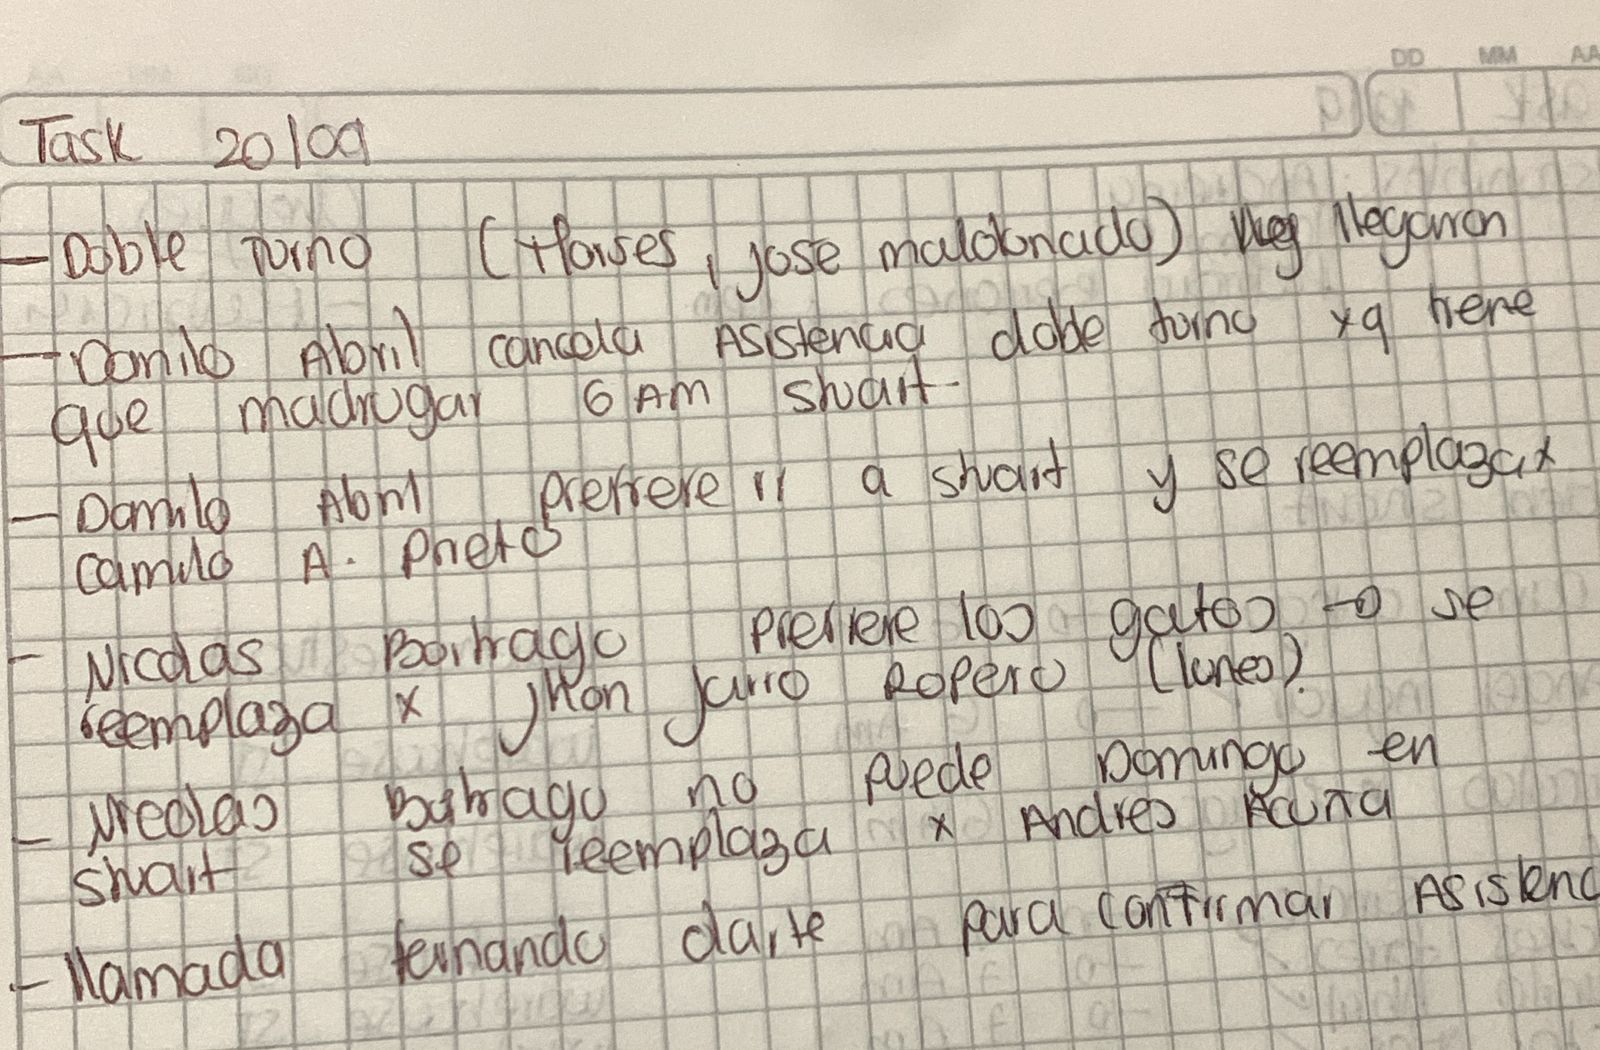 Task 20/09
- Doble Turno (Moises, jose maldonado) llegaron
- Danilo Abril cancela Asistencia doble turno xq tiene
que madrugar 6 AM stuart.
- Danilo Abril prefiere ir a stuart y se reemplaza x
camilo A. Prieto
- Nicolas Boitrago prefiere los gatos → se
reemplaza x jhon jairo Ropero (lunes).
- Nicolas Buitrago no puede Domingo en
stuart se reemplaza x Andres Acuña
- llamada fernando duarte para confirmar Asistenc